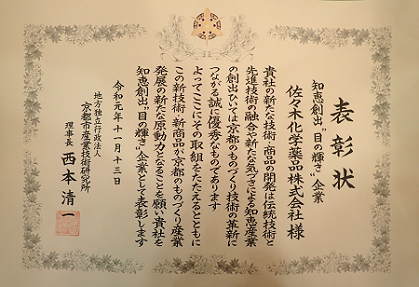 表彰状
知恵創出“目の輝き”企業
佐々木化学薬品株式会社 様
貴社の新たな技術・商品の開発は伝統技術と
先進技術の融合や新たな気づきによる知恵産業
の創出ひいては京都のものづくり技術の革新に
つながる誠に優秀なものであります
よってここにその取組をたたえるとともに
この新技術・新商品が京都のものづくり産業
発展の新たな原動力となることを願い貴社を
知恵創出“目の輝き”企業として表彰します
令和元年十一月十三日
地方独立行政法人
京都市産業技術研究所
理事長 西本清一